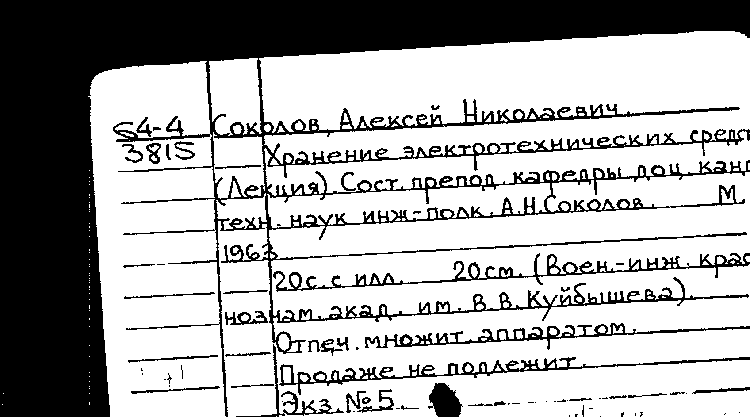 S4-4 Соколов, Алексей Николаевич.
3815 Хранение электротехнических средс
(Лекция). Сост. препод. кафедры доц. канд
техн. наук инж-полк. А.Н.Соколов. М.
1963
20с. с илл. 20см. (Воен.-инж. крас
нознам. акад. им. В.В.Куйбышева).
Отпеч. множит. аппаратом.
Продаже не подлежит.
Экз. №5.